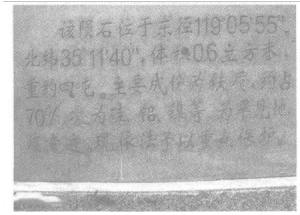 该陨石位于东径119°05′55″,
北纬35°11′40″,体积0.6立方米、
重约四屯。主要成份为铁质,约占
70%,次为硅、铝、镍等,为罕见地
质遗迹,现依法予以重点保护。